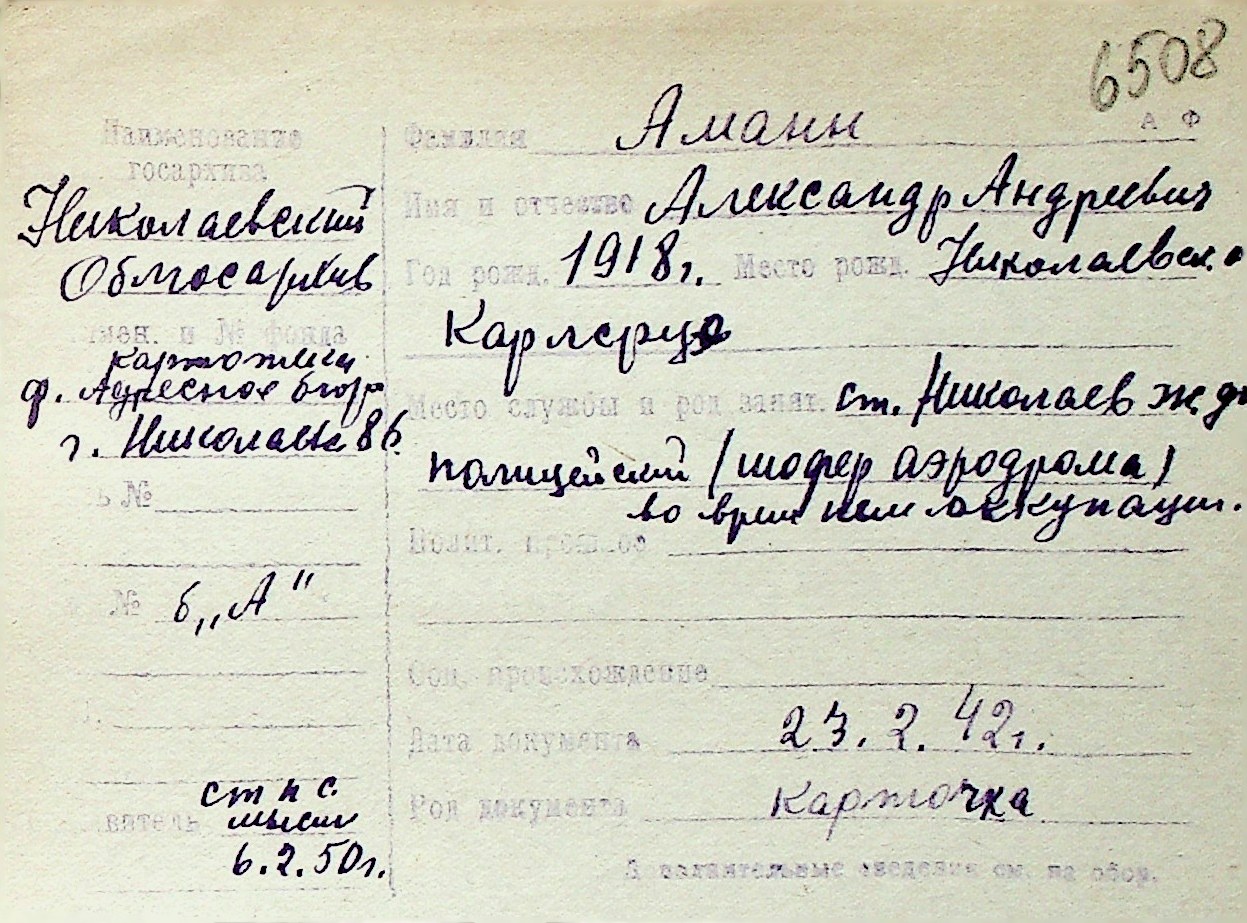 6508
А Ф
Наименование
госархива
Николаевский
Облгосархив
мен. и № фонда
картотеки
ф. Адресное бюро
г. Николаева 86.
ь №
№ б„А"
ст н с.
ватель
6.2.50г.
Фамилия Аманн
Имя и отчество Александр Андреевич
Год рожд. 1918г. Место рожд. Николаевск.о
Карлсруэ
Место службы и род занят. ст. Николаев ж.д
полицейский (шофер аэродрома)
во время нем оккупации.
Полит. прошлое
Соц. происхождение
Дата документа 23.2.42г.
Род документа Карточка
Дополнительные сведения см. на обор.